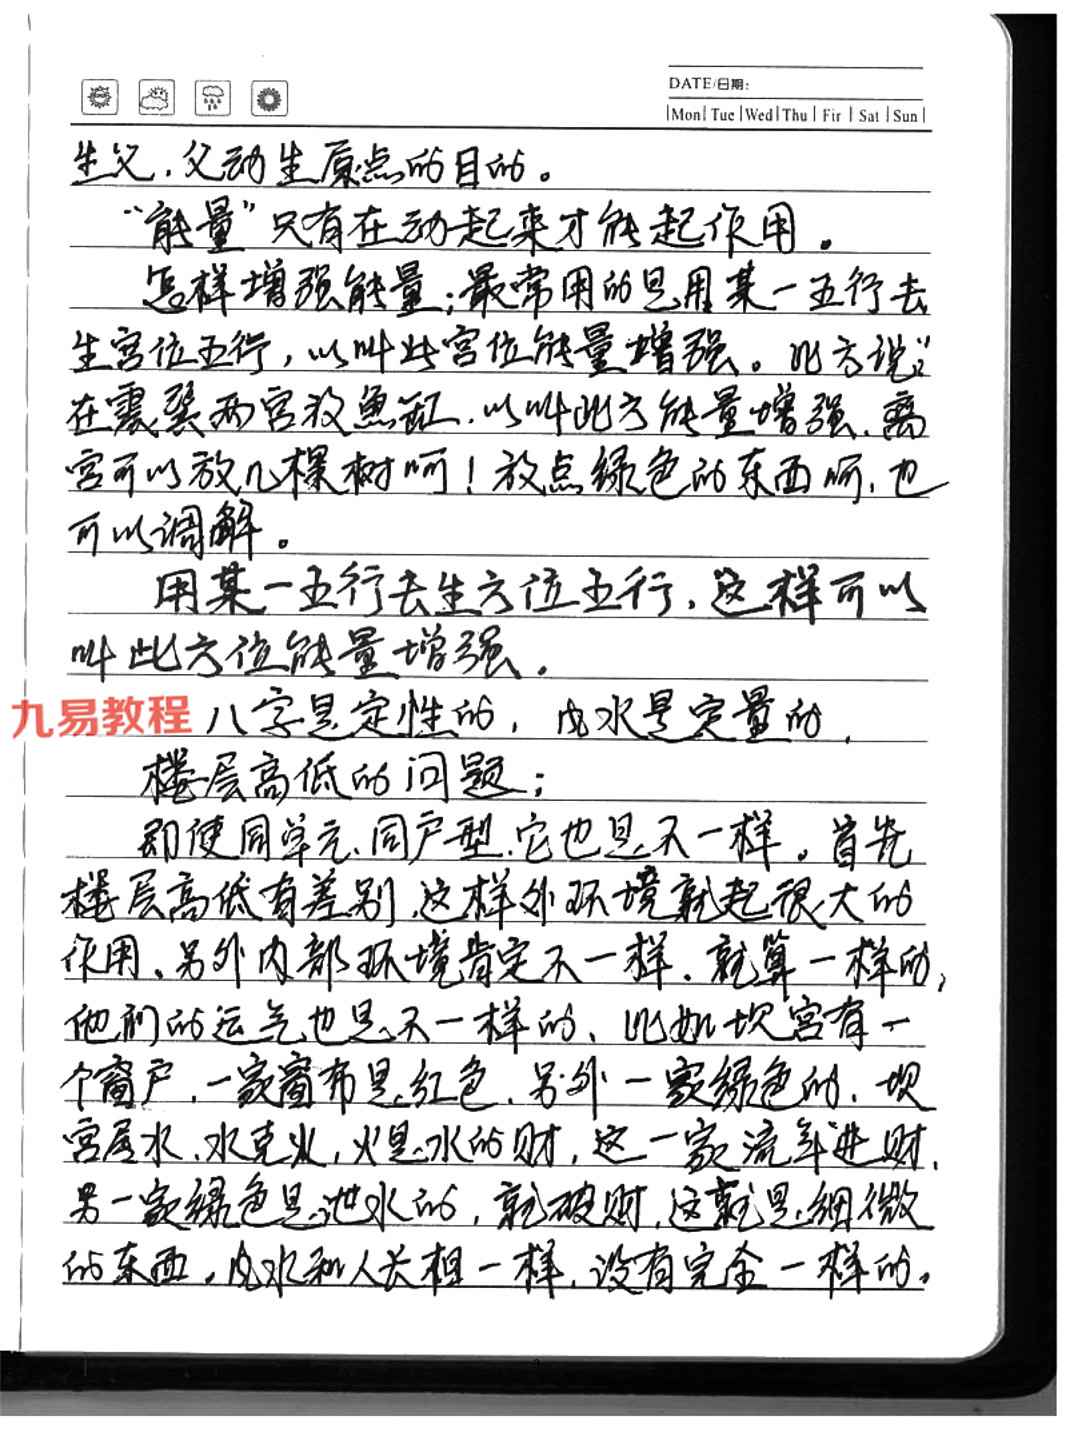 DATE/日期:
Mon Tue Wed Thu Fir Sat Sun
生父，父动生原点的目的。
“能量”只有在动起来才能起作用。
怎样增强能量；最常用的是用某一五行去
生宫位五行，以叫此宫位能量增强。比方说：
在震巽两宫放鱼缸，以叫此方能量增强，离
宫可以放几棵树呵！放点绿色的东西呵，也
可以调解。
用某一五行去生方位五行，这样可以
叫此方位能量增强。
九易教程
八字是定性的，风水是定量的，
楼层高低的问题；
即使同单元、同户型，它也是不一样。首先
楼层高低有差别，这样外环境就起很大的
作用，另外内部环境肯定不一样，就算一样的，
他们的运气也是不一样的，比如坎宫有一
个窗户，一家窗布是红色，另外一家绿色的，坎
宫属水，水克火，火是水的财，这一家流年进财，
另一家绿色是泄水的，就破财，这就是细微
的东西，风水和人长相一样，没有完全一样的。